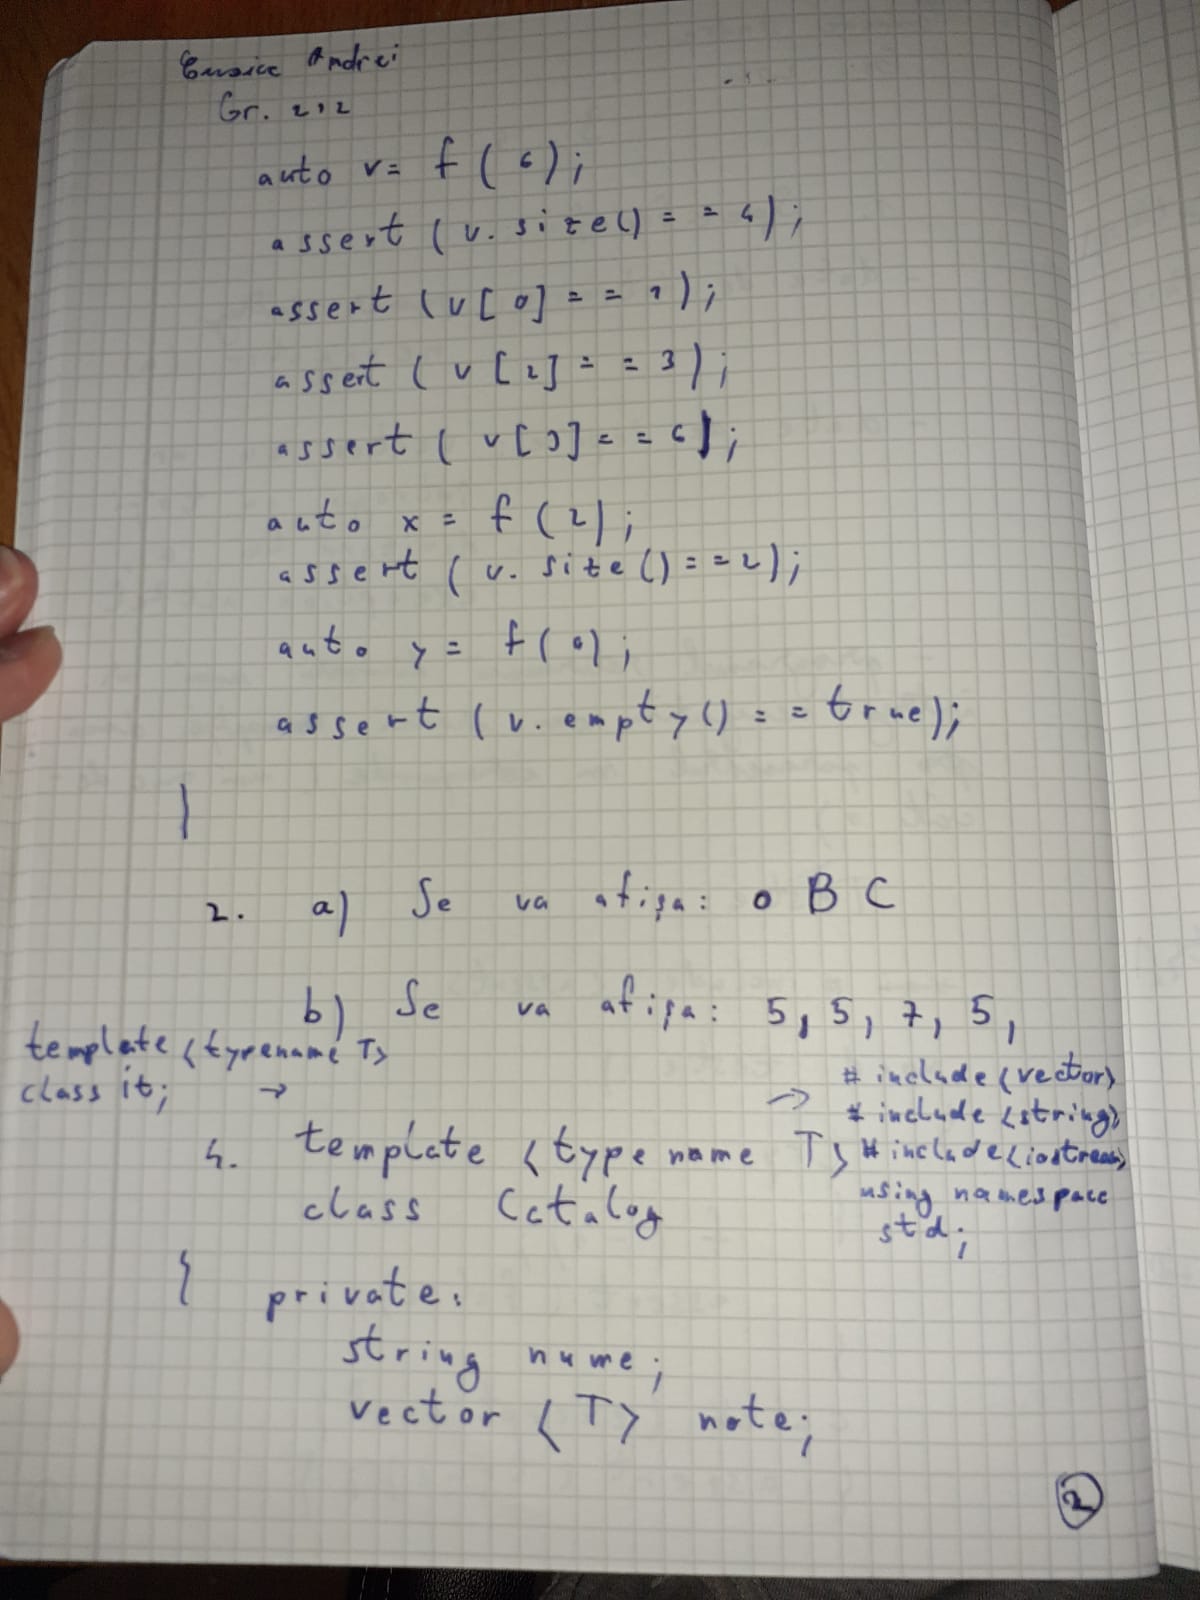 Andrei
Gr. 212
auto v= f(6);
assert (v.size()==4);
assert (v[0]==1);
assert (v[2]==3);
assert (v[3]==6);
auto x = f(2);
assert (v.size()==2);
auto y = f(0);
assert (v.empty()==true);
}
2. a) Se va afișa: o B C
b) Se va afișa: 5, 5, 7, 5,
template <typename T>
class it; →
→ # include <vector>
# include <string>
# include <iostream>
using namespace
std;
4. template <typename T>
class Catalog
{
private:
string nume;
vector <T> note;
2